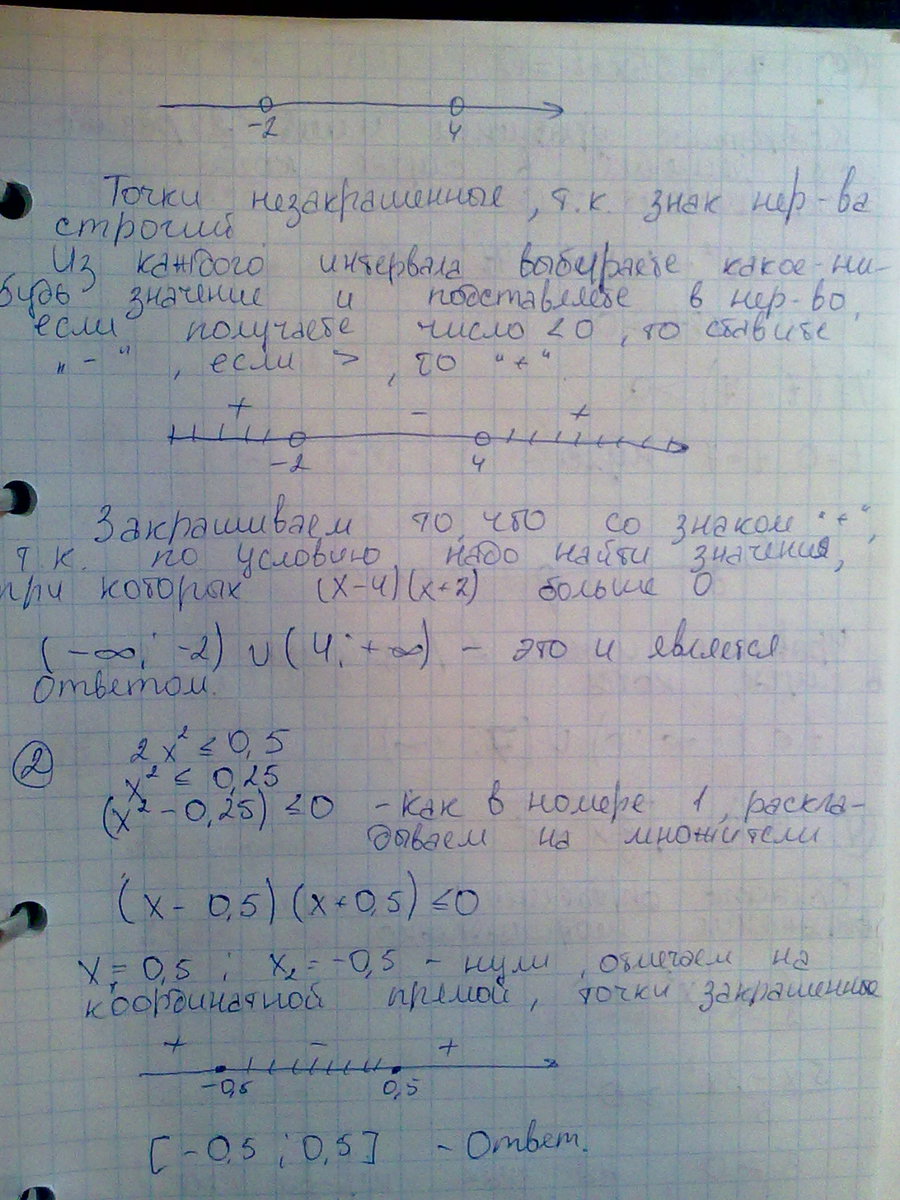 -2 4
Точки незакрашенные, т.к. знак нер-ва
строгий
Из каждого интервала выбираете какое-ни-
будь значение и подставляете в нер-во,
если получаете число <0, то ставите
„-“, если >, то “+“
+ - +
-2 4
Закрашиваем то, что со знаком “+“,
т.к. по условию надо найти значения,
при которых (x-4)(x+2) больше 0
(-∞; -2) ∪ (4; +∞) - это и является
ответом.
② 2x² ≤ 0,5
x² ≤ 0,25
(x² - 0,25) ≤ 0 - как в номере 1, раскла-
дываем на множители
(x - 0,5)(x + 0,5) ≤ 0
x₁ = 0,5; x₂ = -0,5 - нули, отмечаем на
координатной прямой, точки закрашенные
+ - +
-0,5 0,5
[-0,5; 0,5] - Ответ.